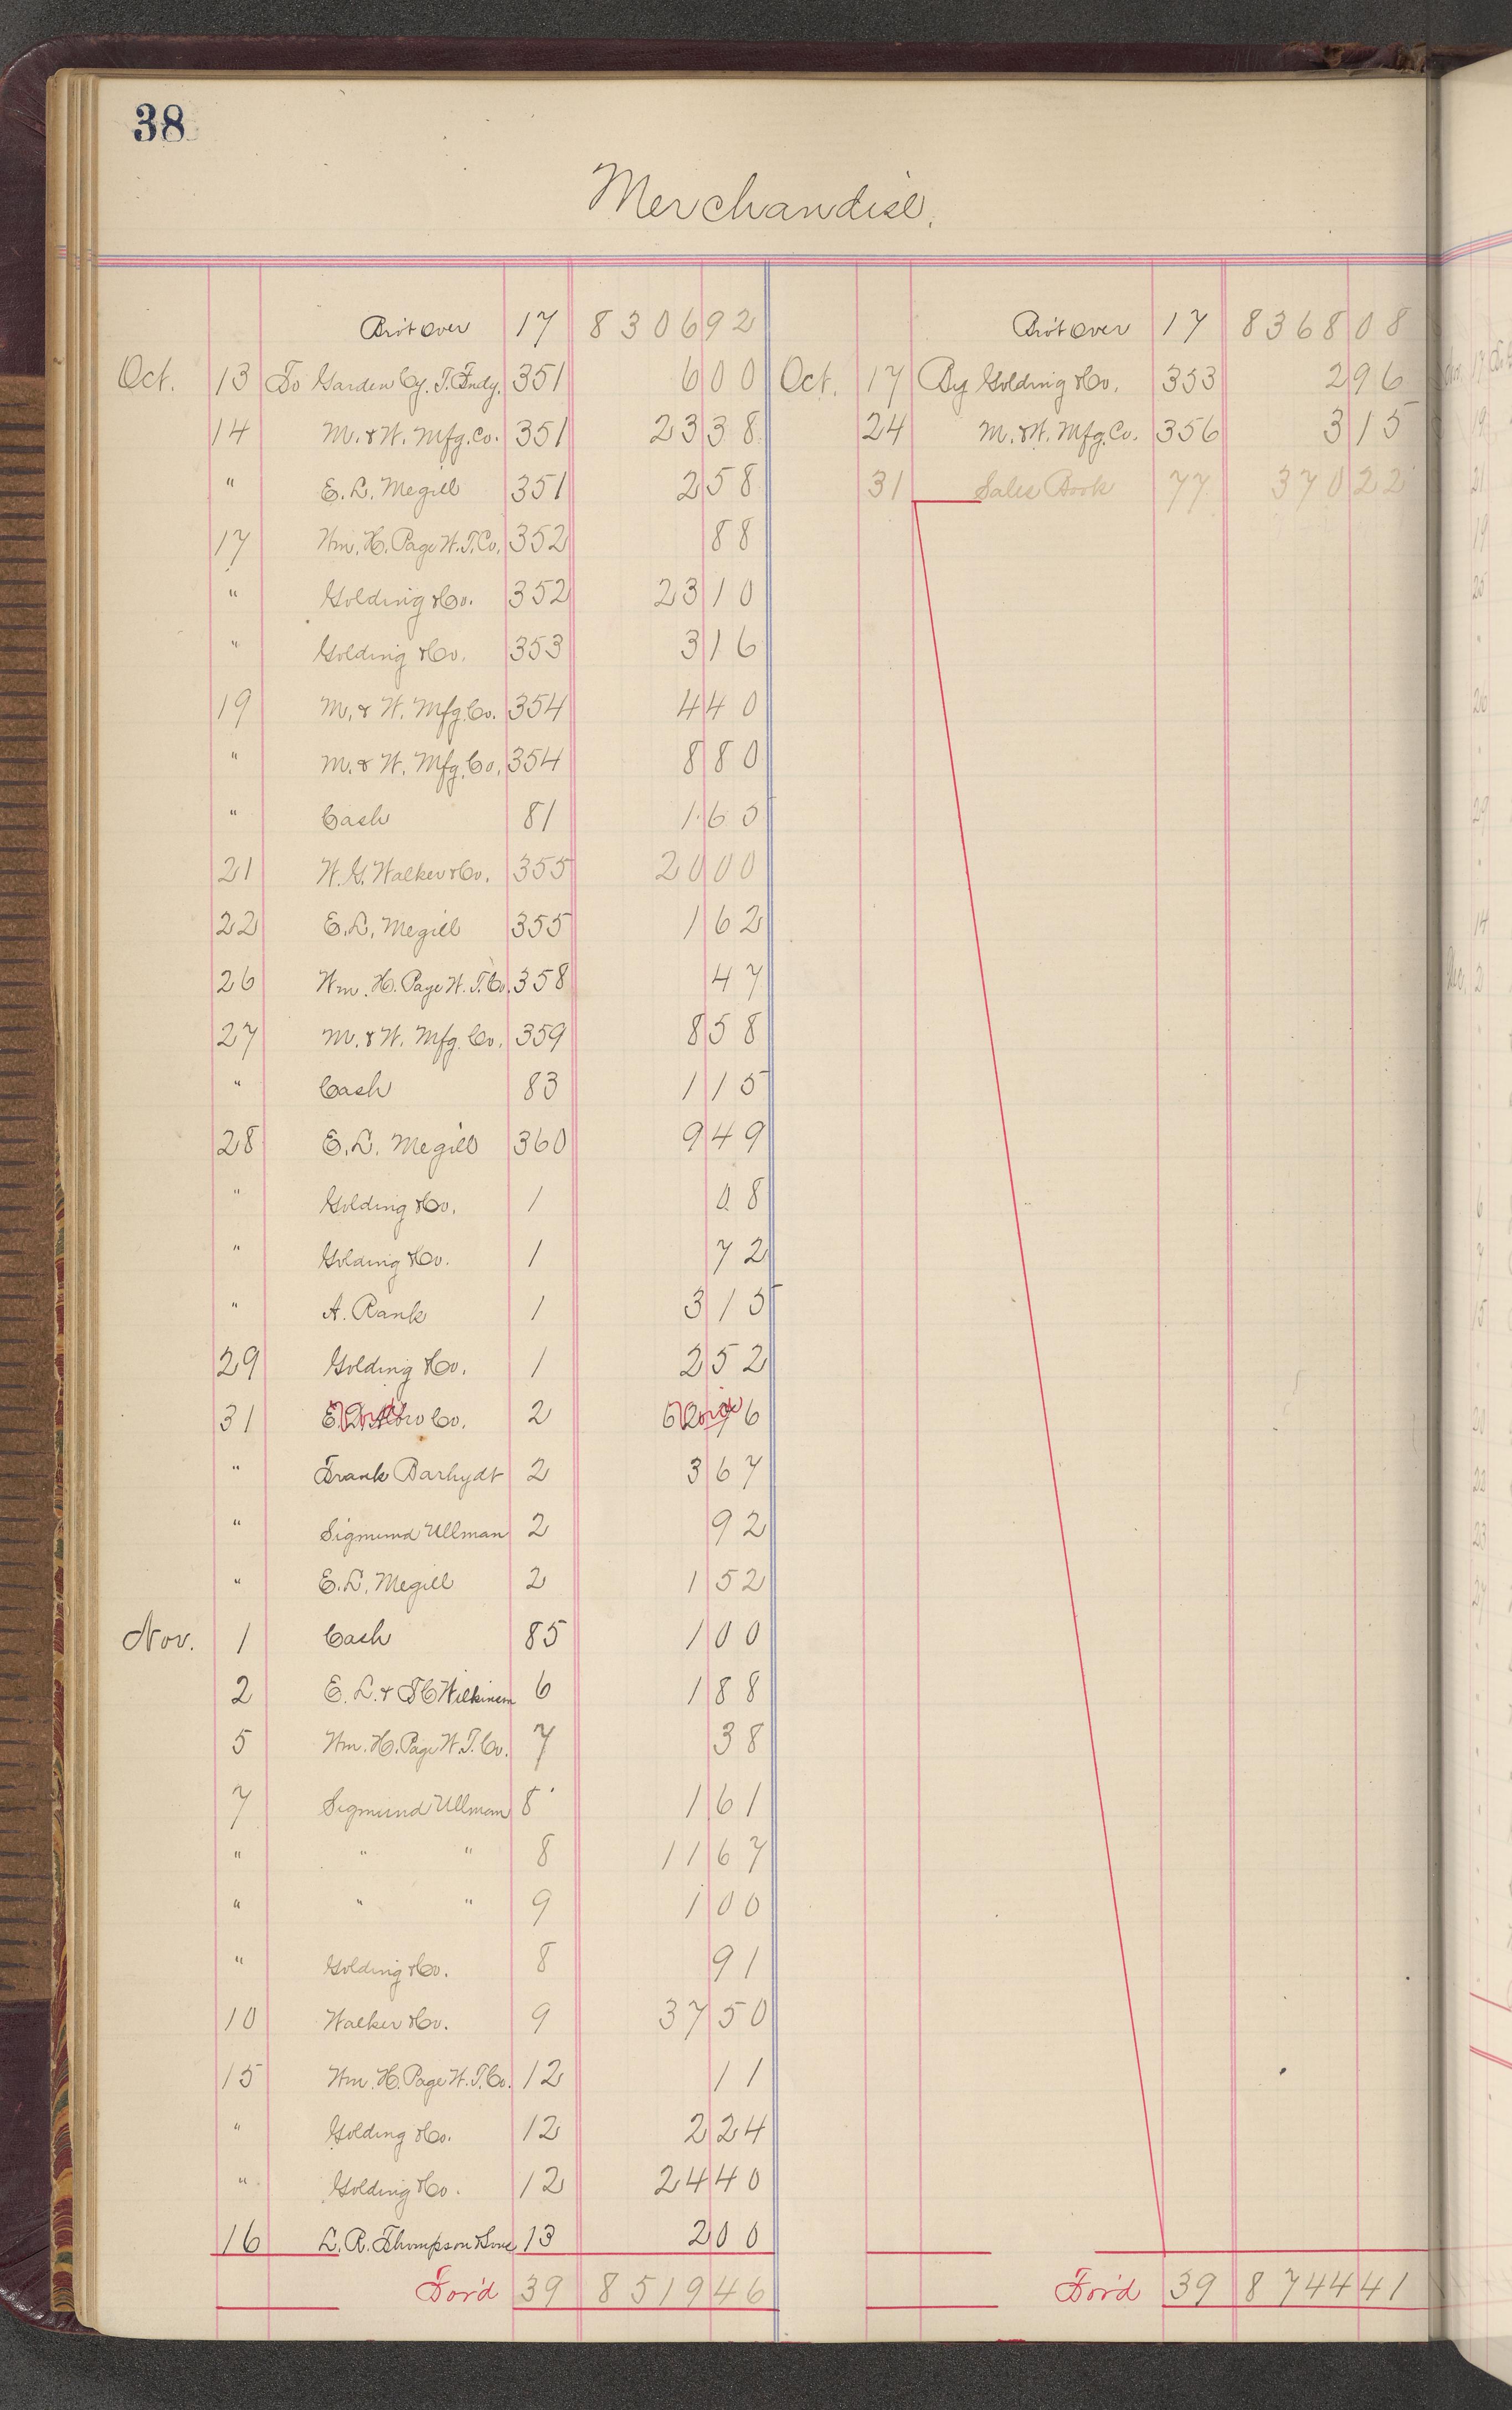 38
Merchandise.
Bro't Over 17 8306 92
Oct. 13 To Garden Cy. T. Fndy. 351 6 00
14 M. & W. Mfg. Co. 351 23 38
" E. L. Megill 351 2 58
17 Wm. H. Page W. T. Co. 352 88
" Golding & Co. 352 23 10
" Golding & Co. 353 3 16
19 M. & W. Mfg. Co. 354 4 40
" M. & W. Mfg. Co. 354 8 80
" Cash 81 1 60
21 W. G. Walker & Co. 355 20 00
22 E. L. Megill 355 1 62
26 Wm. H. Page W. T. Co. 358 47
27 M. & W. Mfg. Co. 359 8 58
" Cash 83 1 15
28 E. L. Megill 360 9 49
" Golding & Co. 1 08
" Golding & Co. 1 72
" A. Rank 1 3 15
29 Golding & Co. 1 2 52
31 Co. 2 Void
" Frank Barhydt 2 3 67
" Sigmund Ullman 2 92
" E. L. Megill 2 1 52
Nov. 1 Cash 85 1 00
2 E. L. & Wilkinson 6 1 88
5 Wm. H. Page W. T. Co. 7 38
7 Sigmund Ullman 8 1 61
" " " 8 11 67
" " " 9 1 00
" Golding & Co. 8 91
10 Walker & Co. 9 37 50
15 Wm. H. Page W. T. Co. 12 11
" Golding & Co. 12 2 24
" Golding & Co. 12 24 40
16 L. R. Thompson & Sons 13 2 00
For'd 39 8519 46
Bro't Over 17 8368 08
Oct. 17 By Golding & Co. 353 2 96
24 M. & W. Mfg. Co. 356 3 15
31 Sales Book 77 370 22
For'd 39 8744 41